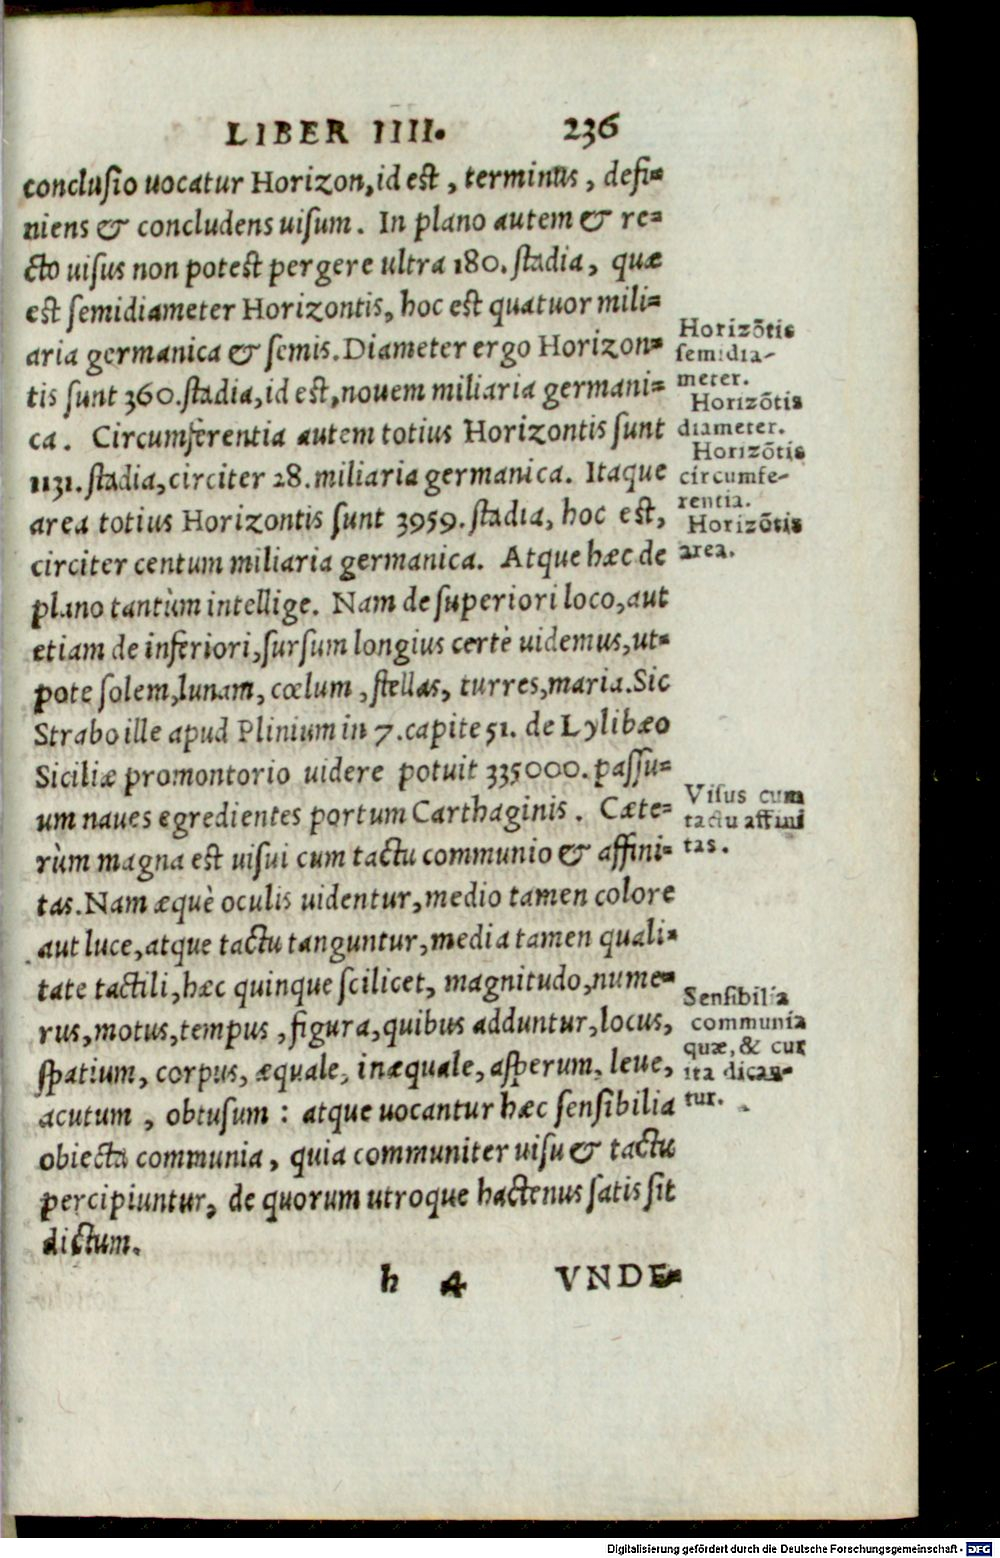 LIBER IIII. 236
conclusio uocatur Horizon, id est, terminus, defi-
niens & concludens uisum. In plano autem & re-
cto uisus non potest pergere ultra 180. stadia, quæ
est semidiameter Horizontis, hoc est quatuor mili-
aria germanica & semis. Diameter ergo Horizon-
tis sunt 360. stadia, id est, nouem miliaria germani-
ca. Circumferentia autem totius Horizontis sunt
1131. stadia, circiter 28. miliaria germanica. Itaque
area totius Horizontis sunt 3959. stadia, hoc est,
circiter centum miliaria germanica. Atque hæc de
plano tantùm intellige. Nam de superiori loco, aut
etiam de inferiori, sursum longius certè uidemus, ut-
pote solem, lunam, cœlum, stellas, turres, maria. Sic
Strabo ille apud Plinium in 7. capite 51. de Lylibæo
Siciliæ promontorio uidere potuit 335000. passu-
um naues egredientes portum Carthaginis. Cæte-
rùm magna est uisui cum tactu communio & affini-
tas. Nam æquè oculis uidentur, medio tamen colore
aut luce, atque tactu tanguntur, media tamen quali-
tate tactili, hæc quinque scilicet, magnitudo, nume-
rus, motus, tempus, figura, quibus adduntur, locus,
spatium, corpus, æquale, inæquale, asperum, leue,
acutum, obtusum: atque uocantur hæc sensibilia
obiecta communia, quia communiter uisu & tactu
percipiuntur, de quorum utroque hactenus satis sit
dictum.
h 4 VNDE-
Horizõtis
semidia-
meter.
Horizõtis
diameter.
Horizõtis
circumfe-
rentia.
Horizõtis
area.
Visus cum
tactu affini
tas.
Sensibilia
communia
quæ, & cur
ita dican-
tur.
Digitalisierung gefördert durch die Deutsche Forschungsgemeinschaft - DFG